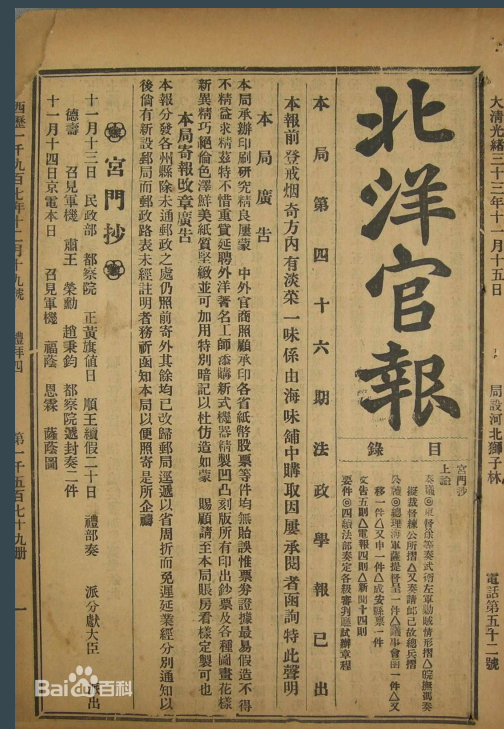 大清光緒三十三年十一月十五日
局設河北獅子林
電話第五十二號
北洋官報
目錄
宮門抄
上諭
文告五則△電報四則△新聞十四則
要件◎四續法部奏定各級審判廳試辦章程
本局第四十六期法政學報已出
本報前登戒烟奇方內有淡菜一味係由海味舖中購取因屢承閱者函詢特此聲明
本局廣告
本局承辦印刷研究精良屢蒙 中外官商照顧承印各省紙幣股票等件均無貽誤惟票券證據最易假造不得
不精益求精茲特不惜重貲延聘外洋著名工師添購新式機器精製凹凸刻版所有印出鈔票及各種圖畫花樣
新異精巧絕倫色澤鮮美紙質堅緻並可加用特別暗記以杜仿造如蒙 賜顧請至本局賬房看樣定製可也
本局寄報改章廣告
本報分發各州縣除未通郵政之處仍照前寄外其餘均已改歸郵局逕遞以省周折而免遲延業經分別通知以
後倘有新設郵局而郵政路表未經註明者務祈函知本局以便照寄是所企禱
宮門抄
十一月十三日 民政部 都察院 正黃旗值日 順王續假二十日 禮部奏 派分獻大臣
德壽 召見軍機 肅王 榮勳 趙秉鈞 都察院遞封奏二件
十一月十四日京電本日 召見軍機 福蔭 恩霖 薩蔭圖
西歷一千九百七年十二月十九號
禮拜四
第一千五百七十九册
一
Bai百科